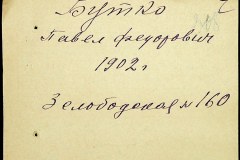 Бутко
Павел Федорович
1902 г
Зелободская № 160